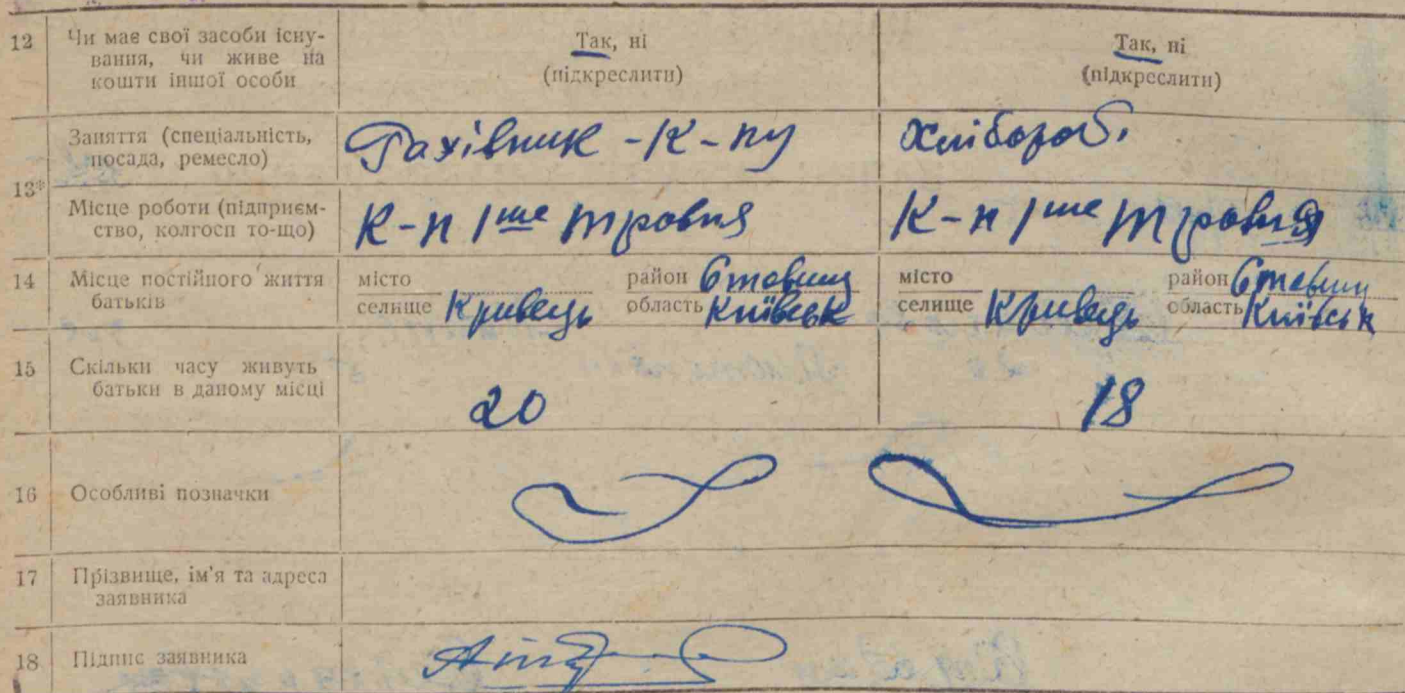 12 Чи має свої засоби існу-
вання, чи живе на
кошти іншої особи
Так, ні
(підкреслити)
Так, ні
(підкреслити)
13* Заняття (спеціальність,
посада, ремесло)
Рахівник - К-пу
Хлібороб.
Місце роботи (підприєм-
ство, колгосп то-що)
К-п 1ше травня
К-п 1ше травня
14 Місце постійного життя
батьків
місто район Ставищ
селище Кривець область Київськ
місто район Ставищ
селище Кривець область Київськ
15 Скільки часу живуть
батьки в даному місці
20
18
16 Особливі позначки
17 Прізвище, ім'я та адреса
заявника
18 Підпис заявника